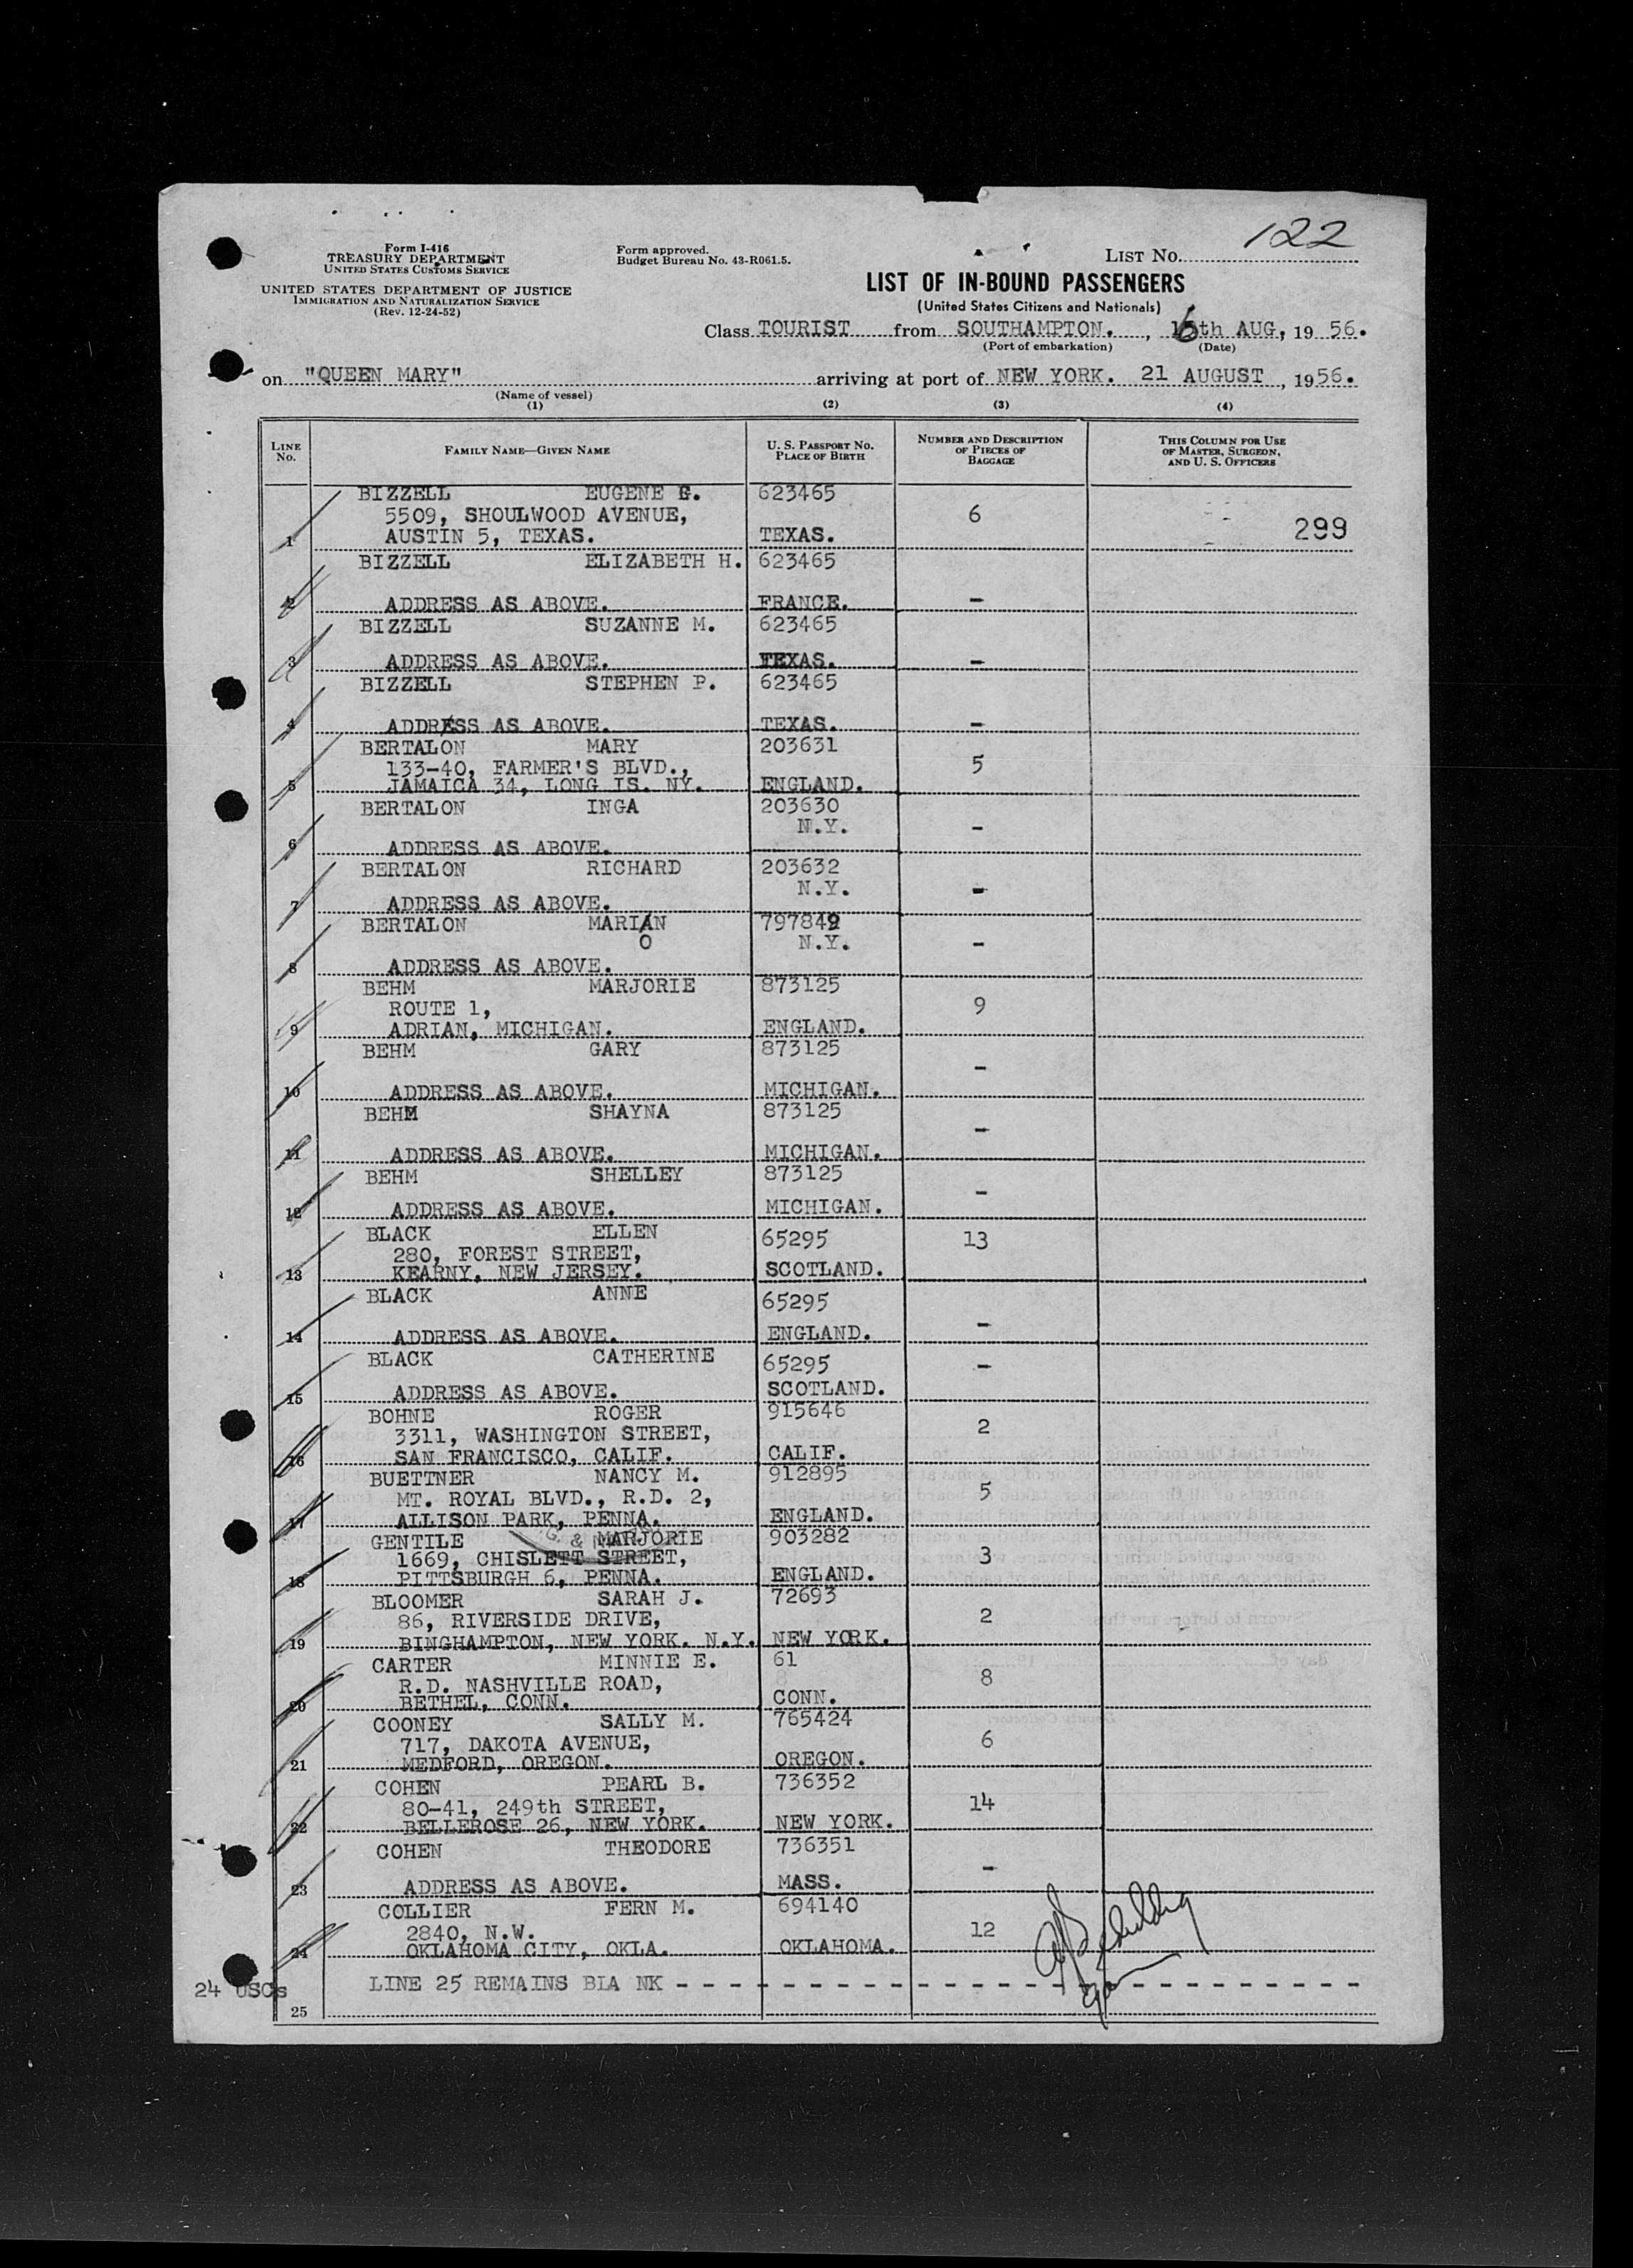 122
Form I-416
TREASURY DEPARTMENT
UNITED STATES CUSTOMS SERVICE
UNITED STATES DEPARTMENT OF JUSTICE
IMMIGRATION AND NATURALIZATION SERVICE
(Rev. 12-24-52)
Form approved.
Budget Bureau No. 43-R061.5.
LIST NO.
LIST OF IN-BOUND PASSENGERS
(United States Citizens and Nationals)
Class TOURIST from SOUTHAMPTON. , 16th AUG, 19 56.
(Port of embarkation) (Date)
on "QUEEN MARY" arriving at port of NEW YORK. 21 AUGUST , 1956.
(Name of vessel)
(1) (2) (3) (4)
LINE NO. FAMILY NAME—GIVEN NAME U. S. PASSPORT NO. PLACE OF BIRTH NUMBER AND DESCRIPTION OF PIECES OF BAGGAGE THIS COLUMN FOR USE OF MASTER, SURGEON, AND U. S. OFFICERS
BIZZELL EUGENE G. 623465
5509, SHOULWOOD AVENUE, 6
1 AUSTIN 5, TEXAS. TEXAS. 299
BIZZELL ELIZABETH H. 623465
2 ADDRESS AS ABOVE. FRANCE. -
BIZZELL SUZANNE M. 623465
3 ADDRESS AS ABOVE. TEXAS. -
BIZZELL STEPHEN P. 623465
4 ADDRESS AS ABOVE. TEXAS. -
BERTALON MARY 203631
133-40, FARMER'S BLVD., 5
5 JAMAICA 34, LONG IS. NY. ENGLAND.
BERTALON INGA 203630
N.Y. -
6 ADDRESS AS ABOVE.
BERTALON RICHARD 203632
N.Y. -
7 ADDRESS AS ABOVE.
BERTALON MARIAN 797842
O N.Y. -
8 ADDRESS AS ABOVE.
BEHM MARJORIE 873125
ROUTE 1, 9
9 ADRIAN, MICHIGAN. ENGLAND.
BEHM GARY 873125
-
10 ADDRESS AS ABOVE. MICHIGAN.
BEHM SHAYNA 873125
-
11 ADDRESS AS ABOVE. MICHIGAN.
BEHM SHELLEY 873125
-
12 ADDRESS AS ABOVE. MICHIGAN.
BLACK ELLEN 65295 13
280, FOREST STREET,
13 KEARNY, NEW JERSEY. SCOTLAND.
BLACK ANNE 65295
-
14 ADDRESS AS ABOVE. ENGLAND.
BLACK CATHERINE 65295 -
15 ADDRESS AS ABOVE. SCOTLAND.
BOHNE ROGER 915646
3311, WASHINGTON STREET, 2
16 SAN FRANCISCO, CALIF. CALIF.
BUETTNER NANCY M. 912895
MT. ROYAL BLVD., R.D. 2, 5
17 ALLISON PARK, PENNA. ENGLAND.
GENTILE MARJORIE 903282
1669, CHISLETT STREET, 3
18 PITTSBURGH 6, PENNA. ENGLAND.
BLOOMER SARAH J. 72693
86, RIVERSIDE DRIVE, 2
19 BINGHAMPTON, NEW YORK. N.Y. NEW YORK.
CARTER MINNIE E. 61
R.D. NASHVILLE ROAD, 8
20 BETHEL, CONN. CONN.
COONEY SALLY M. 765424
717, DAKOTA AVENUE, 6
21 MEDFORD, OREGON. OREGON.
COHEN PEARL B. 736352
80-41, 249th STREET, 14
22 BELLEROSE 26, NEW YORK. NEW YORK.
COHEN THEODORE 736351
-
23 ADDRESS AS ABOVE. MASS.
COLLIER FERN M. 694140
2840, N.W. 12
24 OKLAHOMA CITY, OKLA. OKLAHOMA.
24 USCs LINE 25 REMAINS BLA NK - - - - - - - - - - - - - - - - - - - - - - - - -
25